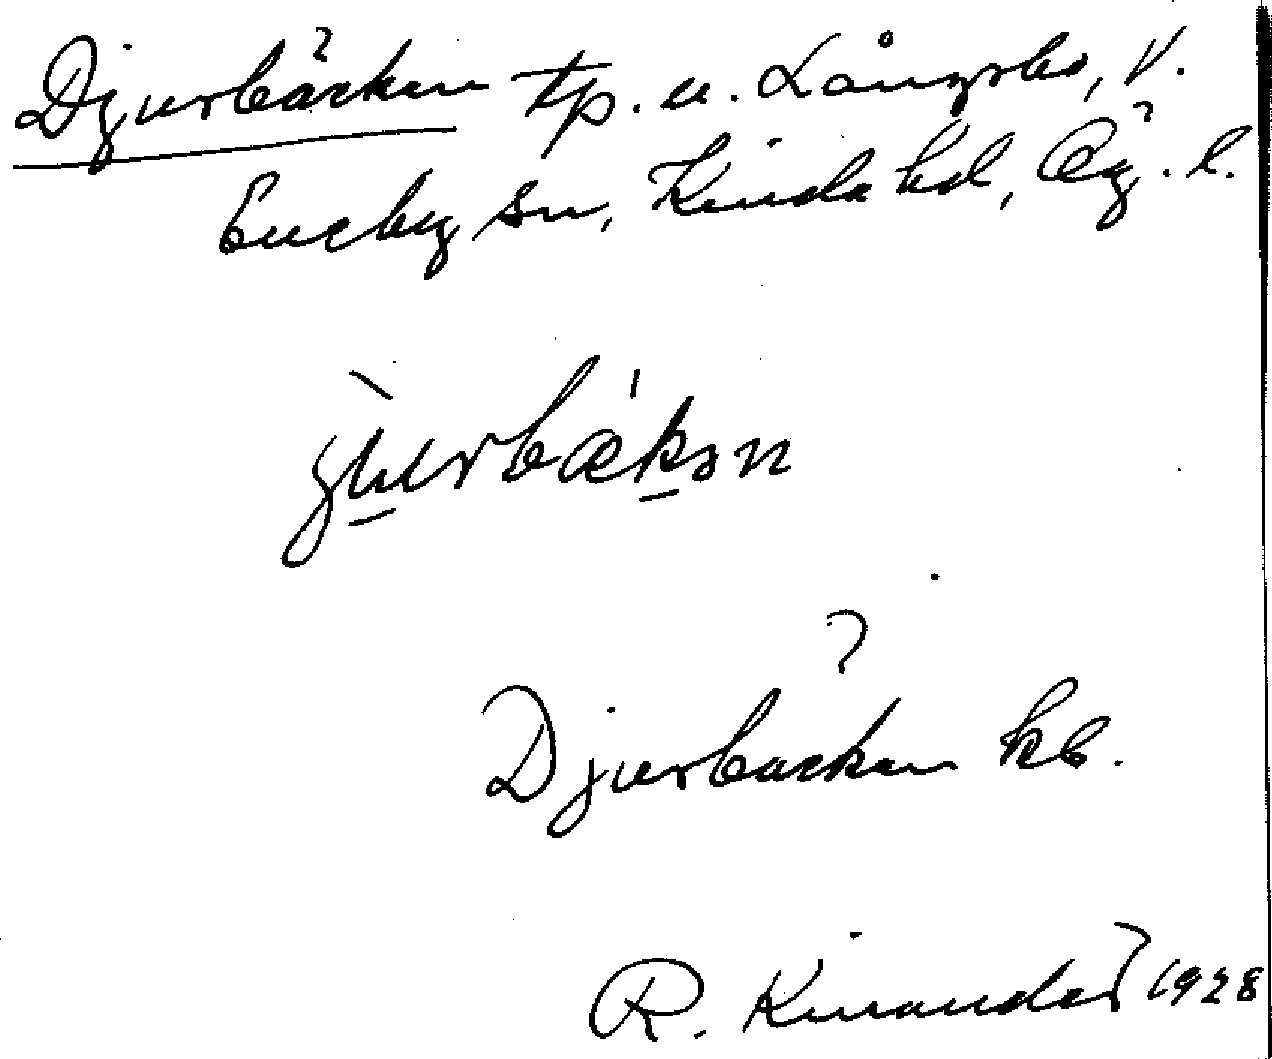 Djurbäcken tp. u. Långrbo, V.
Eneby sn, Kinda hd, Ög. l.
jùrbǽkən
Djurbäcken kb.
R. Kinander 1928